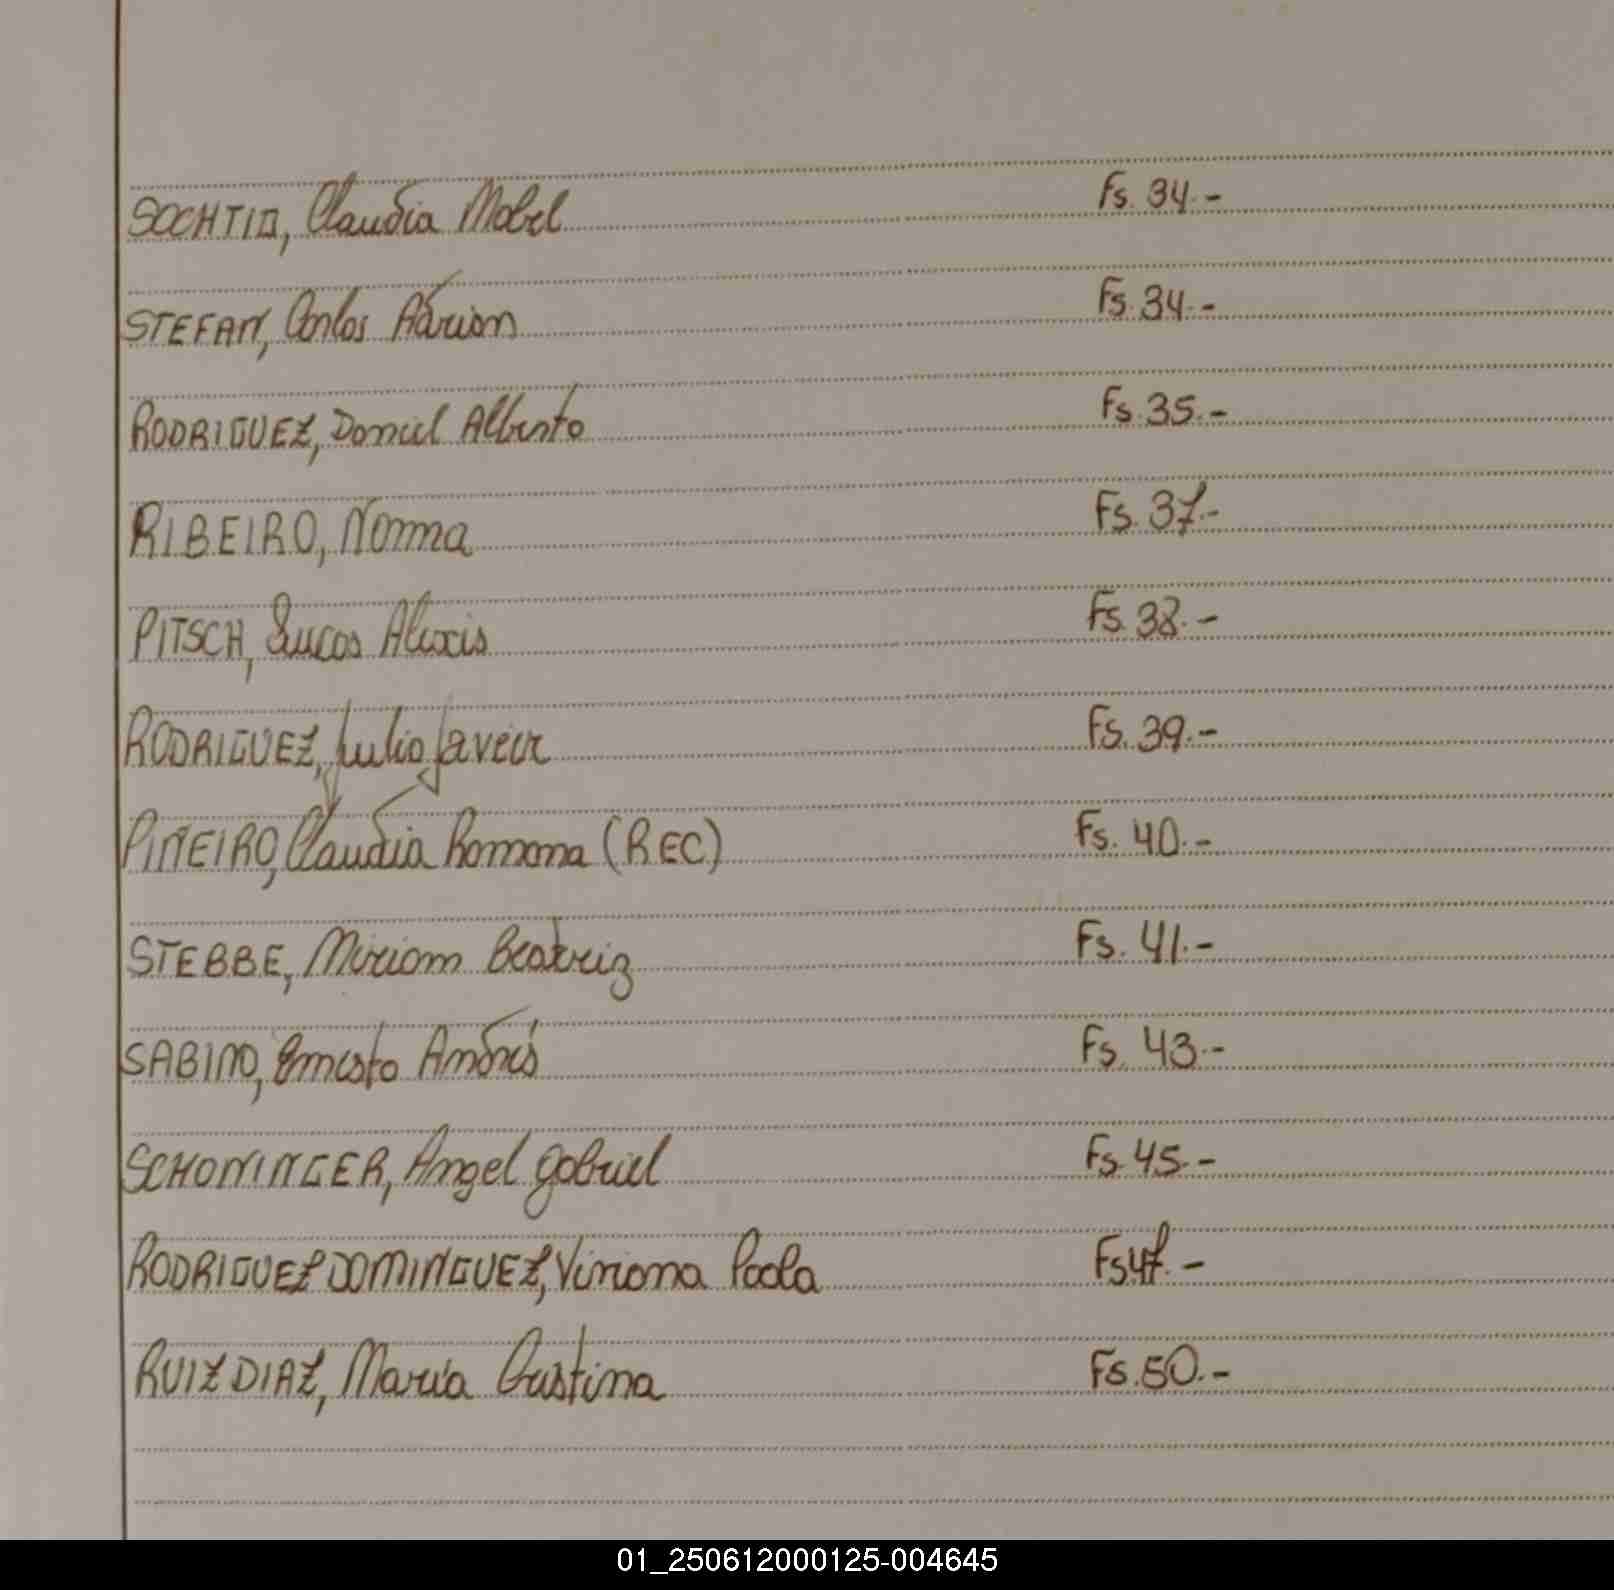 SOCHTIG, Claudia Mabel Fs. 34.-
STEFAN, Carlos Adrian Fs. 34.-
RODRIGUEZ, Daniel Alberto Fs. 35.-
RIBEIRO, Norma Fs. 37.-
PITSCH, Lucas Alexis Fs. 38.-
RODRIGUEZ, Julio Javier Fs. 39.-
PIÑEIRO, Claudia Ramona (REC) Fs. 40.-
STEBBE, Miriam Beatriz Fs. 41.-
SABINO, Ernesto Andrés Fs. 43.-
SCHONINGER, Angel Gabriel Fs. 45.-
RODRIGUEZ DOMINGUEZ, Viviana Paola Fs 47.-
RUIZ DIAZ, Maria Cristina Fs. 50.-
01_250612000125-004645